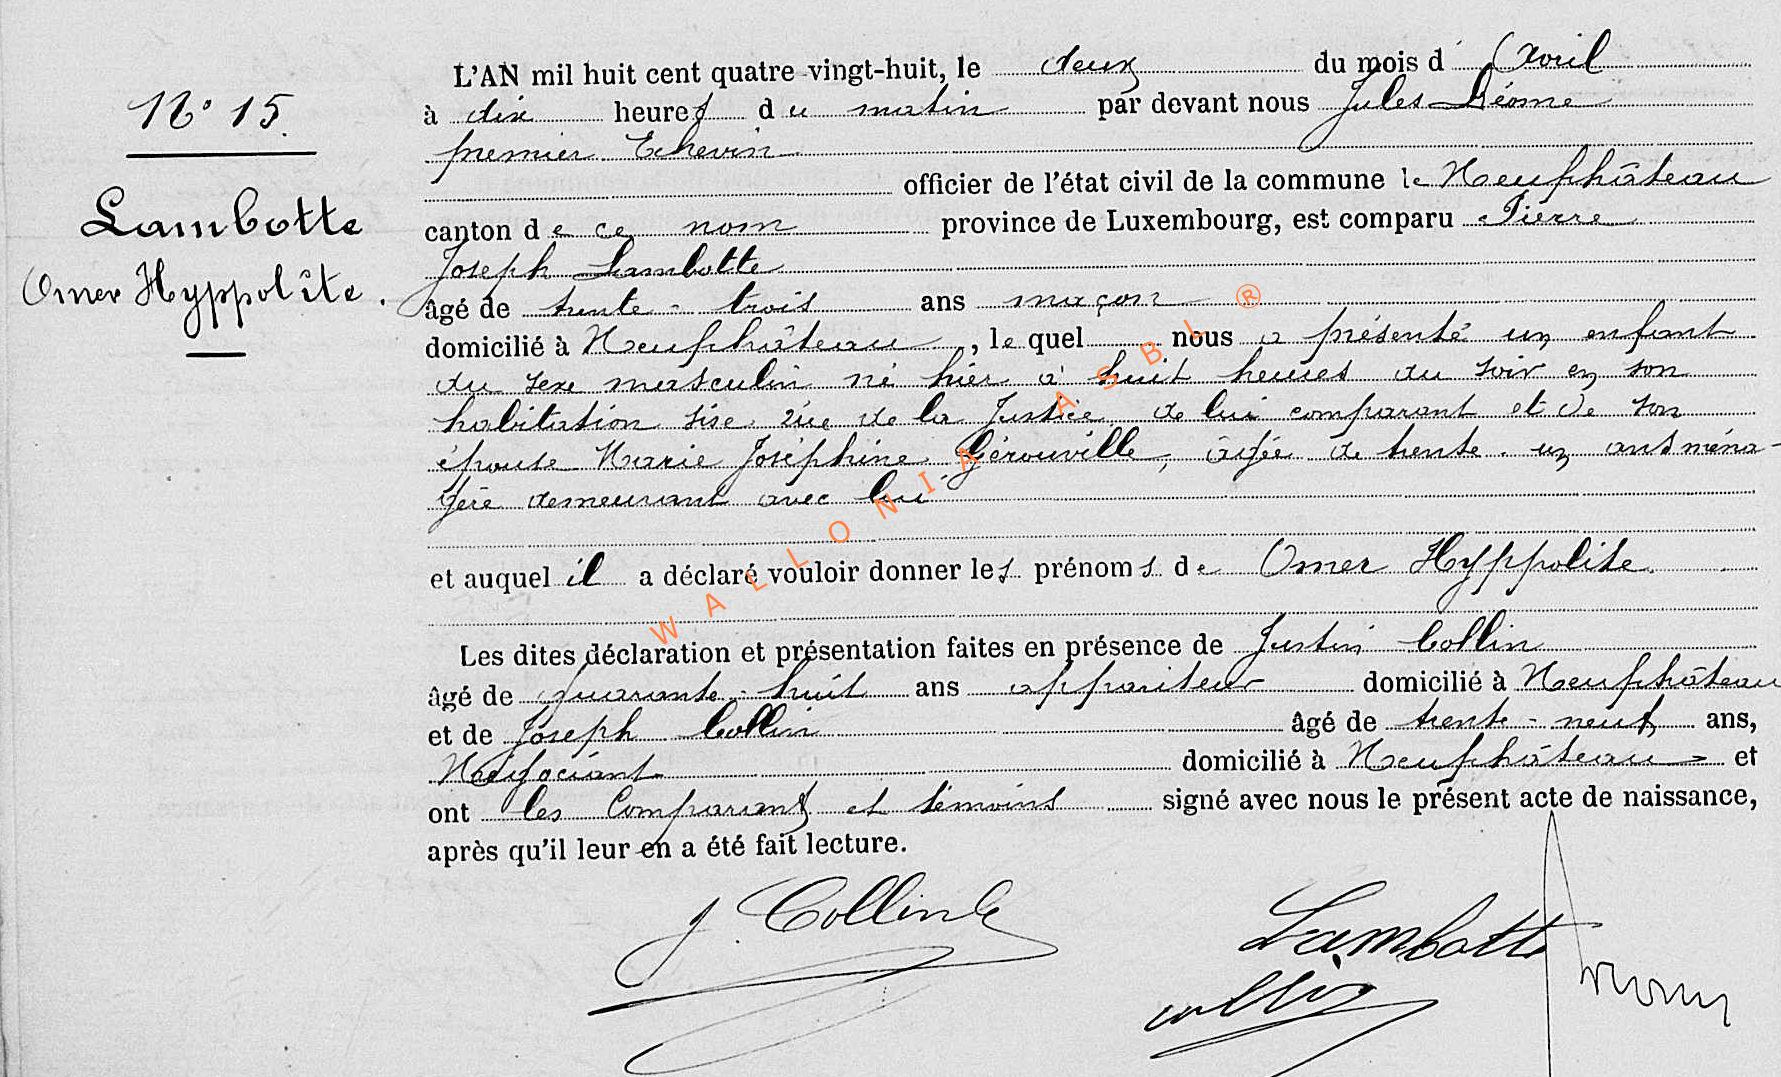 N° 15.
Lambotte
Omer Hyppolîte.
L'AN mil huit cent quatre-vingt-huit, le deux du mois d'Avril
à dix heures du matin par devant nous Jules Léome
premier Echevin
officier de l'état civil de la commune de Neufchâteau
canton de ce nom province de Luxembourg, est comparu Pierre
Joseph Lambotte
âgé de trente-trois ans maçon
domicilié à Neufchâteau, lequel nous a présenté un enfant
du sexe masculin né hier à huit heures du soir en son
habitation sise rue de la Justice, de lui comparant et de son
épouse Marie Joséphine Gérouville, âgée de trente-un ans ména-
gère demeurant avec lui
et auquel il a déclaré vouloir donner les prénoms de Omer Hyppolite.
Les dites déclaration et présentation faites en présence de Justin Collin
âgé de quarante-huit ans appariteur domicilié à Neufchâteau
et de Joseph Collin âgé de trente-neuf ans,
Négociant domicilié à Neufchâteau et
ont les Comparant et témoins signé avec nous le présent acte de naissance,
après qu'il leur en a été fait lecture.
J. Collin
Lambotte
Collin
WALLONIA ASBL ®